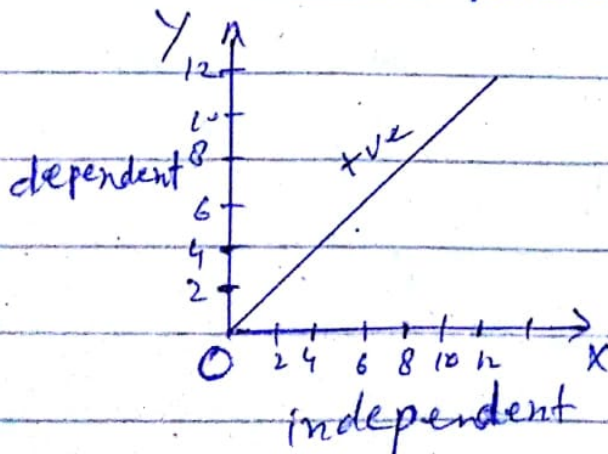 Y
12
10
8
dependent
6
4
2
+ve
O
2 4 6 8 10 12 X
independent